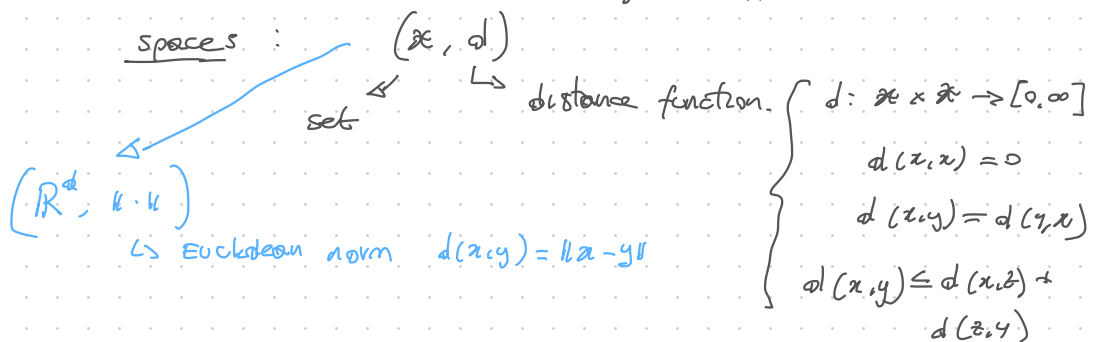 spaces : (𝒳, d)
set
distance function.
d: 𝒳 × 𝒳 → [0, ∞]
d(x,x) = 0
d(x,y) = d(y,x)
d(x,y) ≤ d(x,z) +
d(z,y)
(ℝ^d, ‖·‖)
↳ Euclidean norm d(x,y) = ‖x-y‖